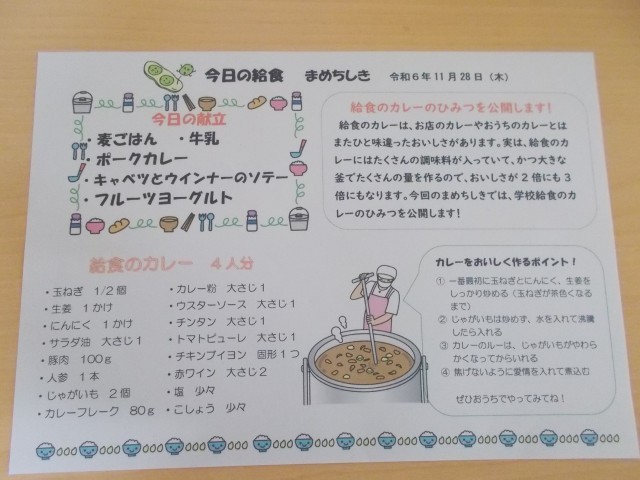 今日の給食　まめちしき　令和6年11月28日（木）
今日の献立
・麦ごはん　・牛乳
・ポークカレー
・キャベツとウインナーのソテー
・フルーツヨーグルト
給食のカレーのひみつを公開します！
給食のカレーは、お店のカレーやおうちのカレーとは
またひと味違ったおいしさがあります。実は、給食のカ
レーにはたくさんの調味料が入っていて、かつ大きな
釜でたくさんの量を作るので、おいしさが２倍にも３
倍にもなります。今回のまめちしきでは、学校給食のカ
レーのひみつを公開します！
給食のカレー　４人分
・玉ねぎ　1/2個
・生姜　１かけ
・にんにく　１かけ
・サラダ油　大さじ１
・豚肉　100ｇ
・人参　１本
・じゃがいも　２個
・カレーフレーク　80ｇ
・カレー粉　大さじ１
・ウスターソース　大さじ１
・チンタン　大さじ１
・トマトピューレ　大さじ１
・チキンブイヨン　固形１つ
・赤ワイン　大さじ２
・塩　少々
・こしょう　少々
カレーをおいしく作るポイント！
① 一番最初に玉ねぎとにんにく、生姜を
しっかり炒める（玉ねぎが茶色くなる
まで）
② じゃがいもは炒めず、水を入れて沸騰
したら入れる
③ カレーのルーは、じゃがいもがやわら
かくなってからいれる
④ 焦げないように愛情を入れて煮込む
ぜひおうちでやってみてね！